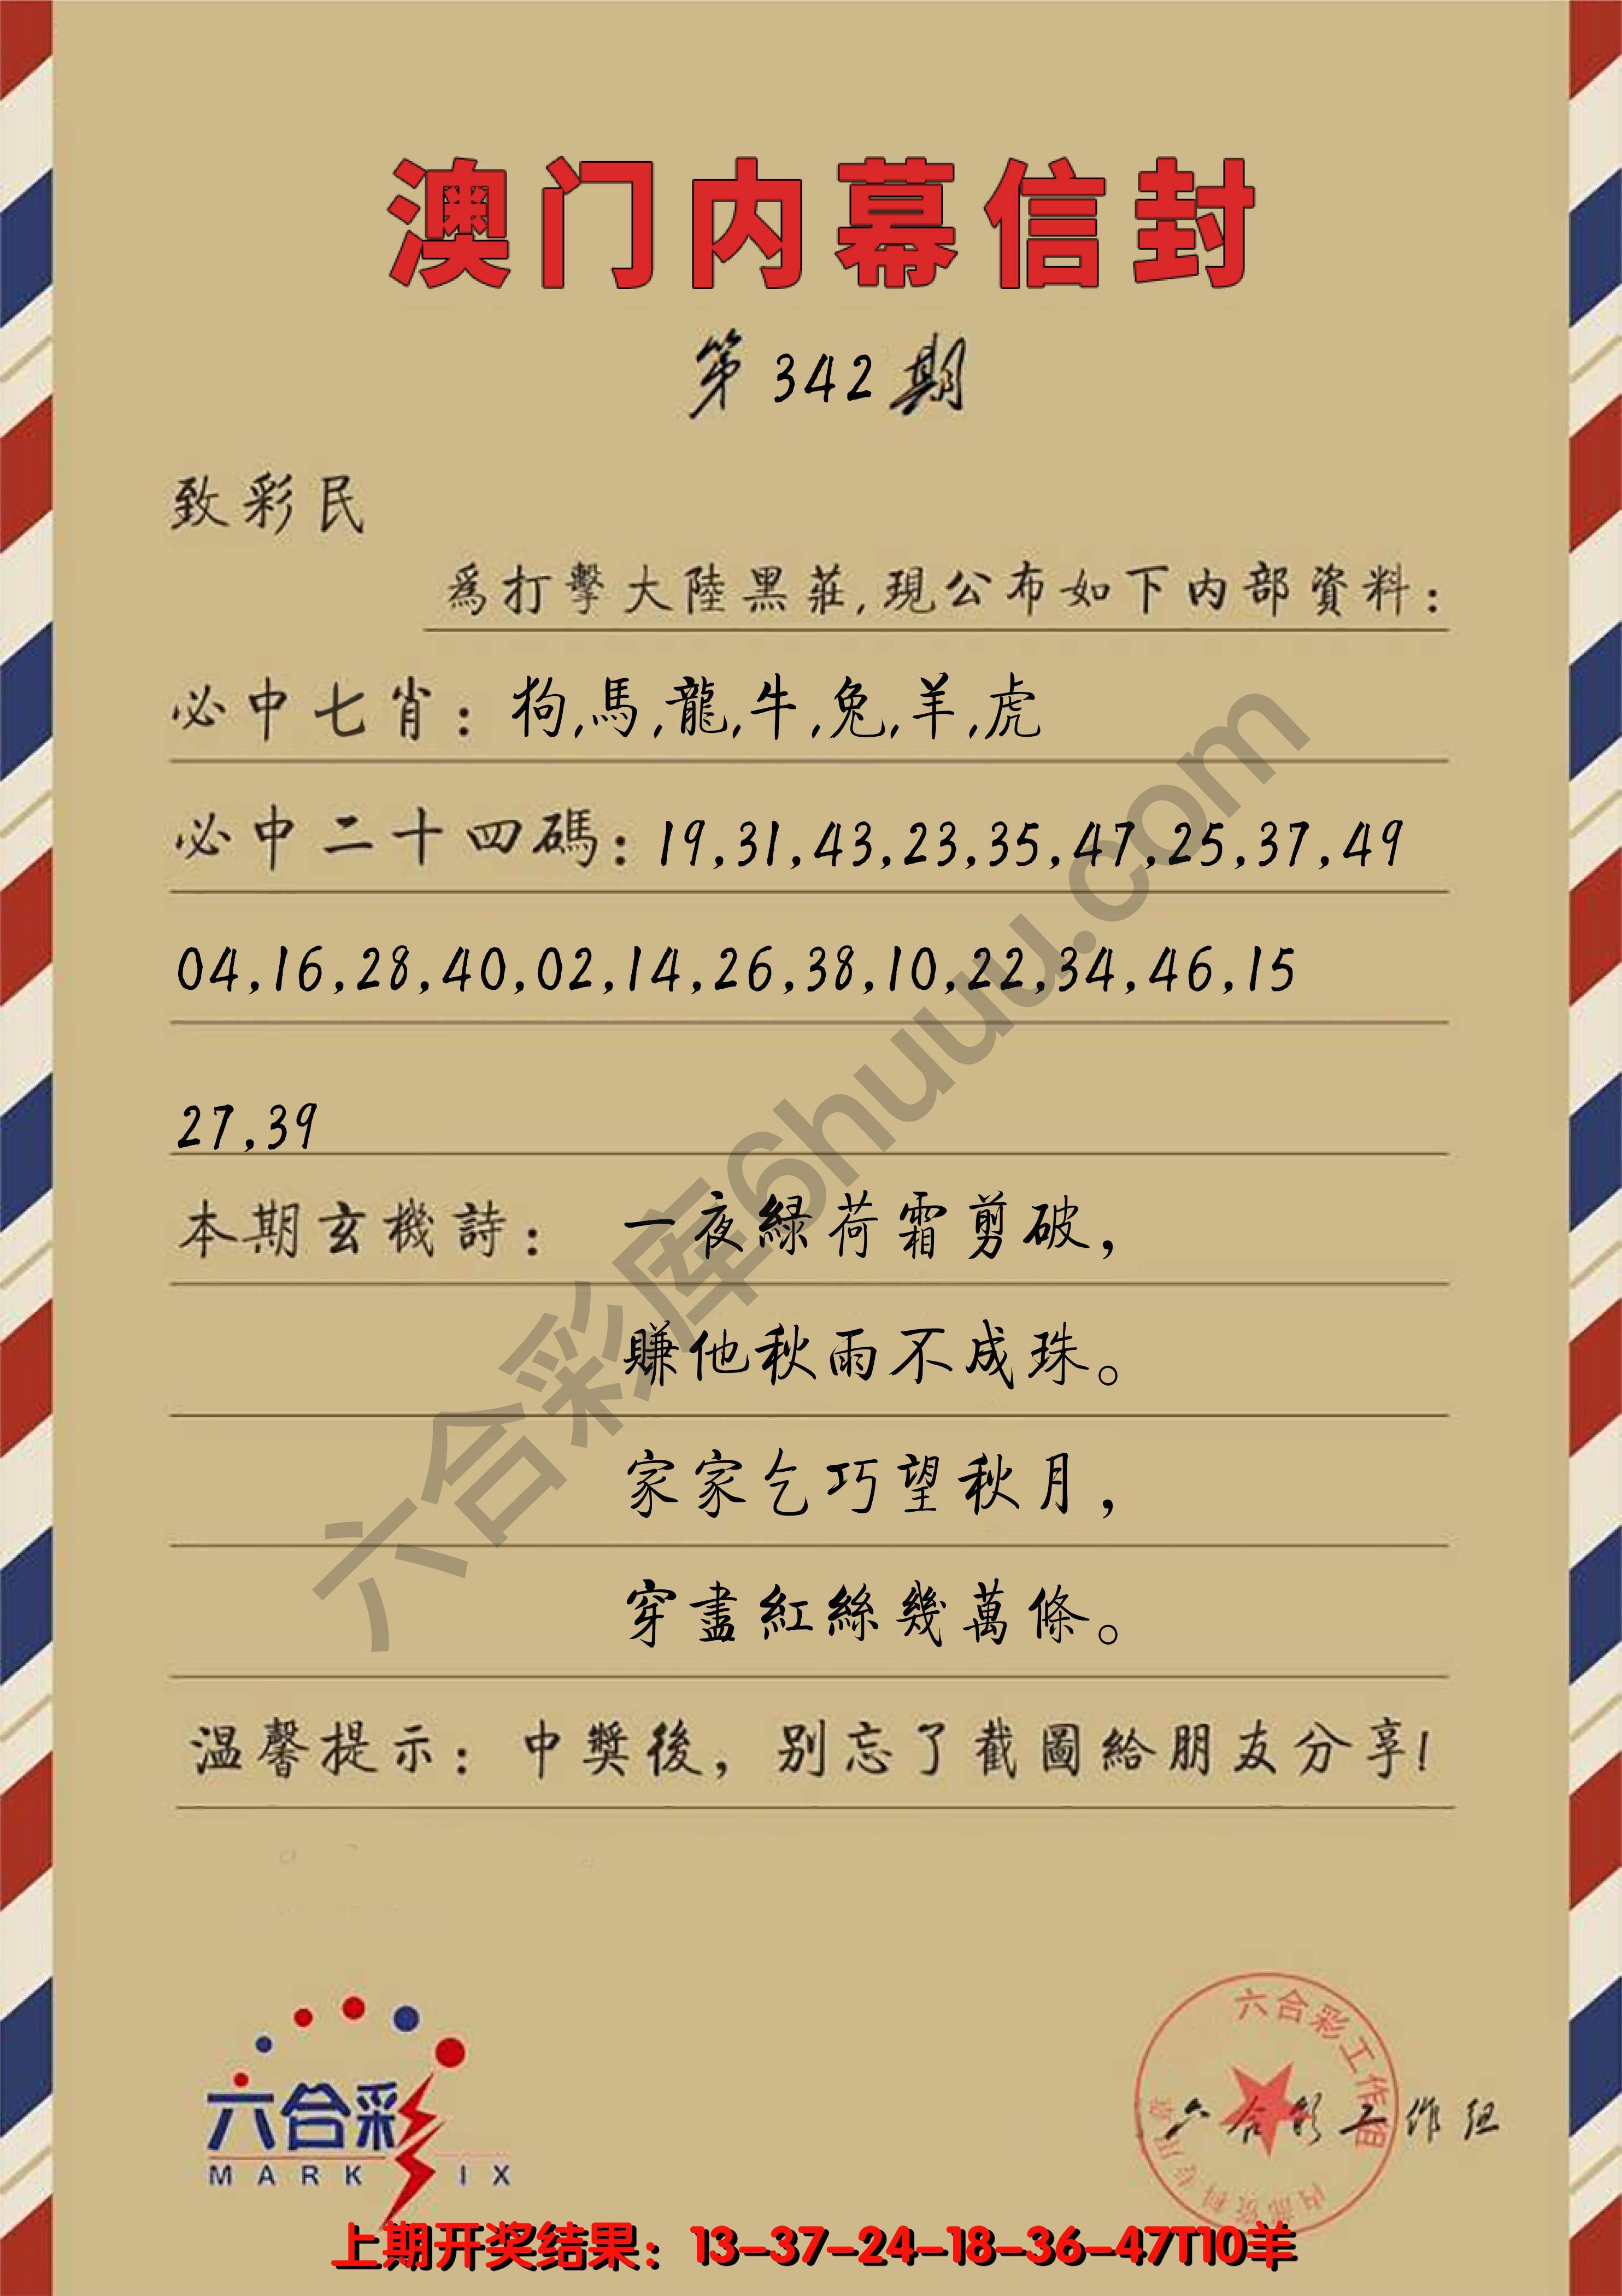 澳门内幕信封
第342期
致彩民
爲打擊大陸黑莊,現公布如下内部資料:
必中七肖: 狗,馬,龍,牛,兔,羊,虎
必中二十四碼: 19,31,43,23,35,47,25,37,49
04,16,28,40,02,14,26,38,10,22,34,46,15
27,39
本期玄機詩: 一夜緑荷霜剪破,
賺他秋雨不成珠。
家家乞巧望秋月,
穿盡紅絲幾萬條。
温馨提示: 中獎後, 别忘了截圖給朋友分享!
六合彩库6huuu.com
六合彩
MARK IX
六合彩工作组
六合彩工作组
上期开奖结果: 13-37-24-18-36-47T10羊